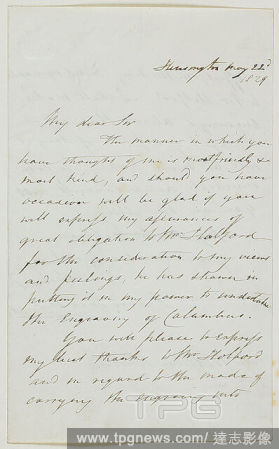 Kensington May 22d
1829
My dear Sir
The manner in which you
have thought of me is most friendly &
most kind, and should you have
occasion will be glad if you
will express my assurances of
great obligation to Mr Holford
for the consideration to my views
and feelings, he has shewn in
putting it in my power to undertake
the Engraving of Columbus.
You will please to express
my best thanks to Mr Holford
and in regard to the mode of
carrying the engraving into
TPG
www.tpgnews.com/達志影像